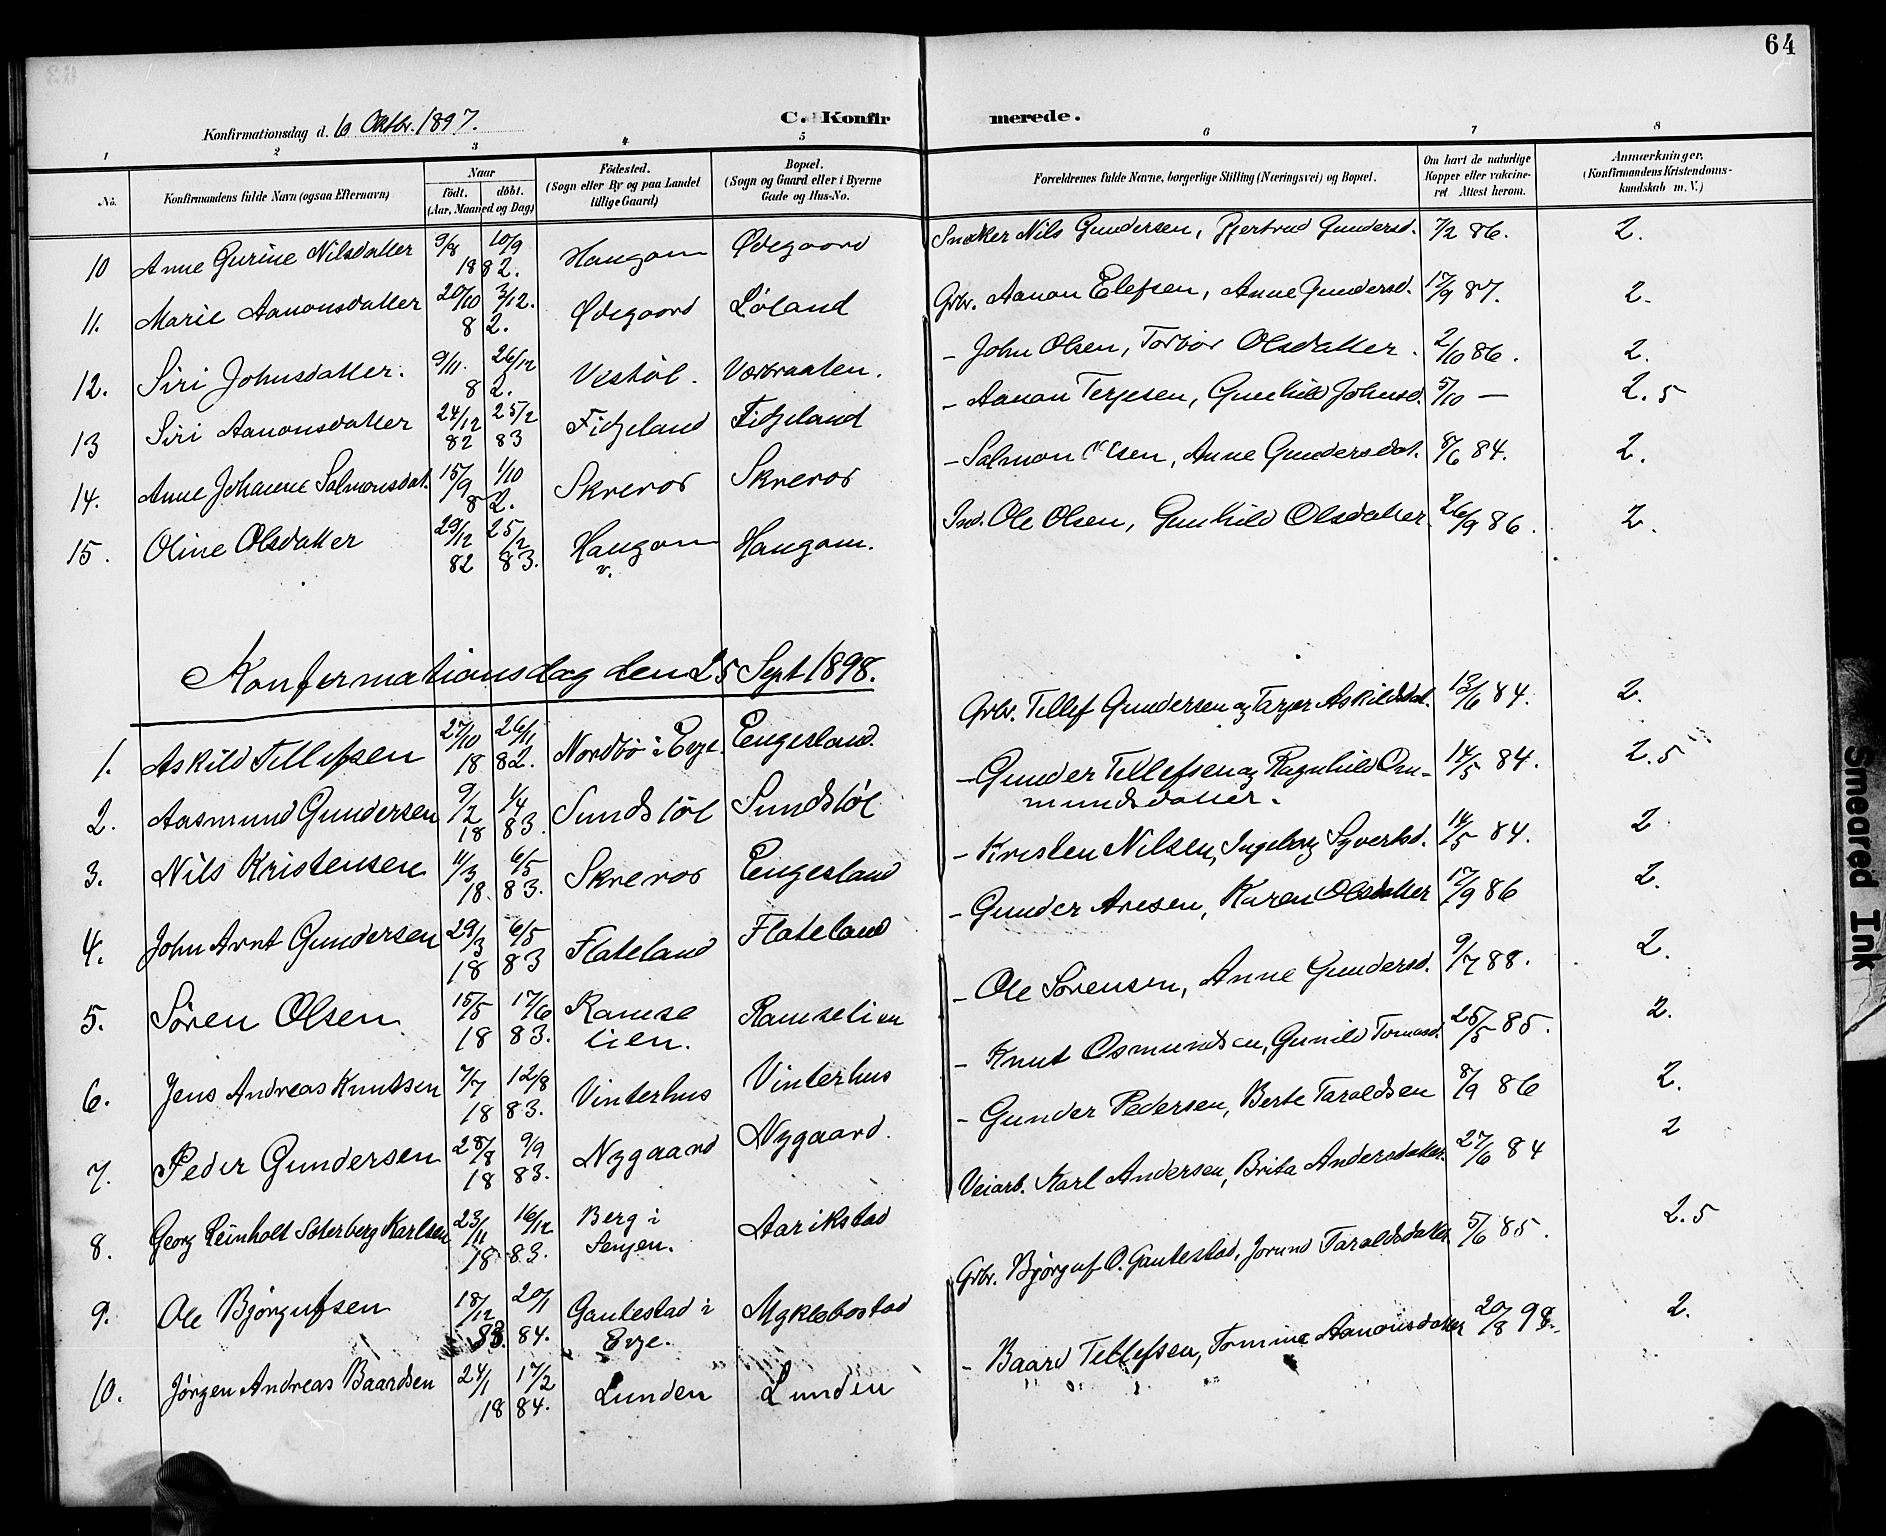 64
Konfirmationsdag d. 10 Oktbr. 1897.
C. Konfirmerede.
1 2 3 4 5 6 7 8
No. Konfirmandens fulde Navn (ogsaa Efternavn) Naar født. døbt. (Aar, Maaned og Dag) Födested. (Sogn eller By og paa Landet tillige Gaard) Bopæl. (Sogn og Gaard eller i Byerne Gade og Hus-No. Forældrenes fulde Navne, borgerlige Stilling (Næringsvei) og Bopæl. Om havt de naturlige Kopper eller vakcineret Attest herom. Anmærkninger. (Konfirmandens Kristendomskundskab m. V.)
10 Anne Gurine Nilsdatter 9/8 10/9 1882. Haugom Ødegaard Snekker Nils Gundersen, Gjertrud Gundersd. 7/2 86. 2.
11. Marie Aanonsdatter 20/10 3/12. 82. Ødegaard Løland Grbr. Aanon Elefsen, Anne Gundersd. 17/9 87. 2.
12. Siri Johnsdatter. 9/11. 26/12 82. Vestøl. Værbraaten. - John Olsen, Torbor Olsdatter. 2/10 86. 2.
13 Siri Aanonsdatter 24/12 82 25/2 83 Fidjeland Fidjeland - Aanon Terjesen, Gunhild Johnsd. 5/10 — 2.5
14. Anne Johanne Salmonsdat. 15/9 1/10 82. Skreros Skreros - Salmon Olsen, Anne Gundersdat. 8/6 84. 2.
15. Oline Olsdatter 29/12 82 25/2 83. Haugom v. Haugom. Ind. Ole Olsen, Gunhild Olsdatter 26/9 86. 2.
Konfirmationsdag den 25 Sept 1898.
1. Askild Tellefsen 27/10 26/11 1882. Nordbø i Evje. Engesland. Grbr. Tellef Gundersen og Tarjer Askildsdat. 13/6 84. 2.
2. Aasmund Gundersen 9/2 1/4 1883. Sundstøl Sundstøl - Gunder Tellefsen og Ragnhild Osmundsdatter. 14/5 84. 2.5
3. Nils Kristensen 11/3 6/5 1883. Skreros Engesland - Kristen Nilsen, Ingeborg Syvertsd. 14/5 84. 2
4. John Arnt Gundersen 29/3 6/5 1883 Flateland Flateland - Gunder Aresen, Karen Olsdatter 17/9 86 2.
5. Søren Olsen 15/5 17/6 1883. Ramse lien. Ramselien - Ole Sørensen, Anne Gundersd. 9/7 88. 2.
6. Jens Andreas Knutsen 7/7 12/8 1883. Vinterhus Vinterhus - Knut Osmundsen, Gunild Tomasd. 25/5 85. 2.
7. Peder Gundersen 28/8 9/9 1883. Nygaard Nygaard. - Gunder Pedersen, Berte Taraldsen 8/9 86 2.
8. Georg Reinholt Søterberg Karlsen 23/11 16/12 1883. Berg i Senjen. Aarikstad Veiarb. Karl Andersen, Brita Andersdatter. 27/6 84 2
9. Ole Bjørgufsen 18/12 83. 20/1 84. Gautestad i Evje. Myklebostad Grbr. Bjørguf O. Gautestad, Jorund Taraldsdatter. 5/6 85. 2.5
10. Jørgen Andreas Baardsen 24/1 17/2 1884. Lunden Lunden - Baard Tellefsen, Tomine Aanonsdatter 20/8 98. 2.
Smeared Ink